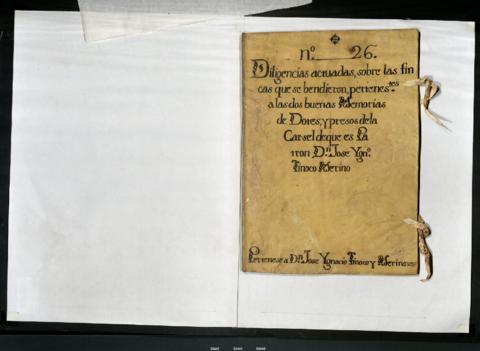 nº. 26.
Diligencias actuadas, sobre las fin
cas que se bendieron, pertenes.tes
a las dos buenas Memorias
de Dotes, y presos de la
Carsel de que es Pa
tron Dn. Jose Ygnº.
Tinoco Merino
Pertenese a Dn. Jose Ygnacio Tinoco y Merino